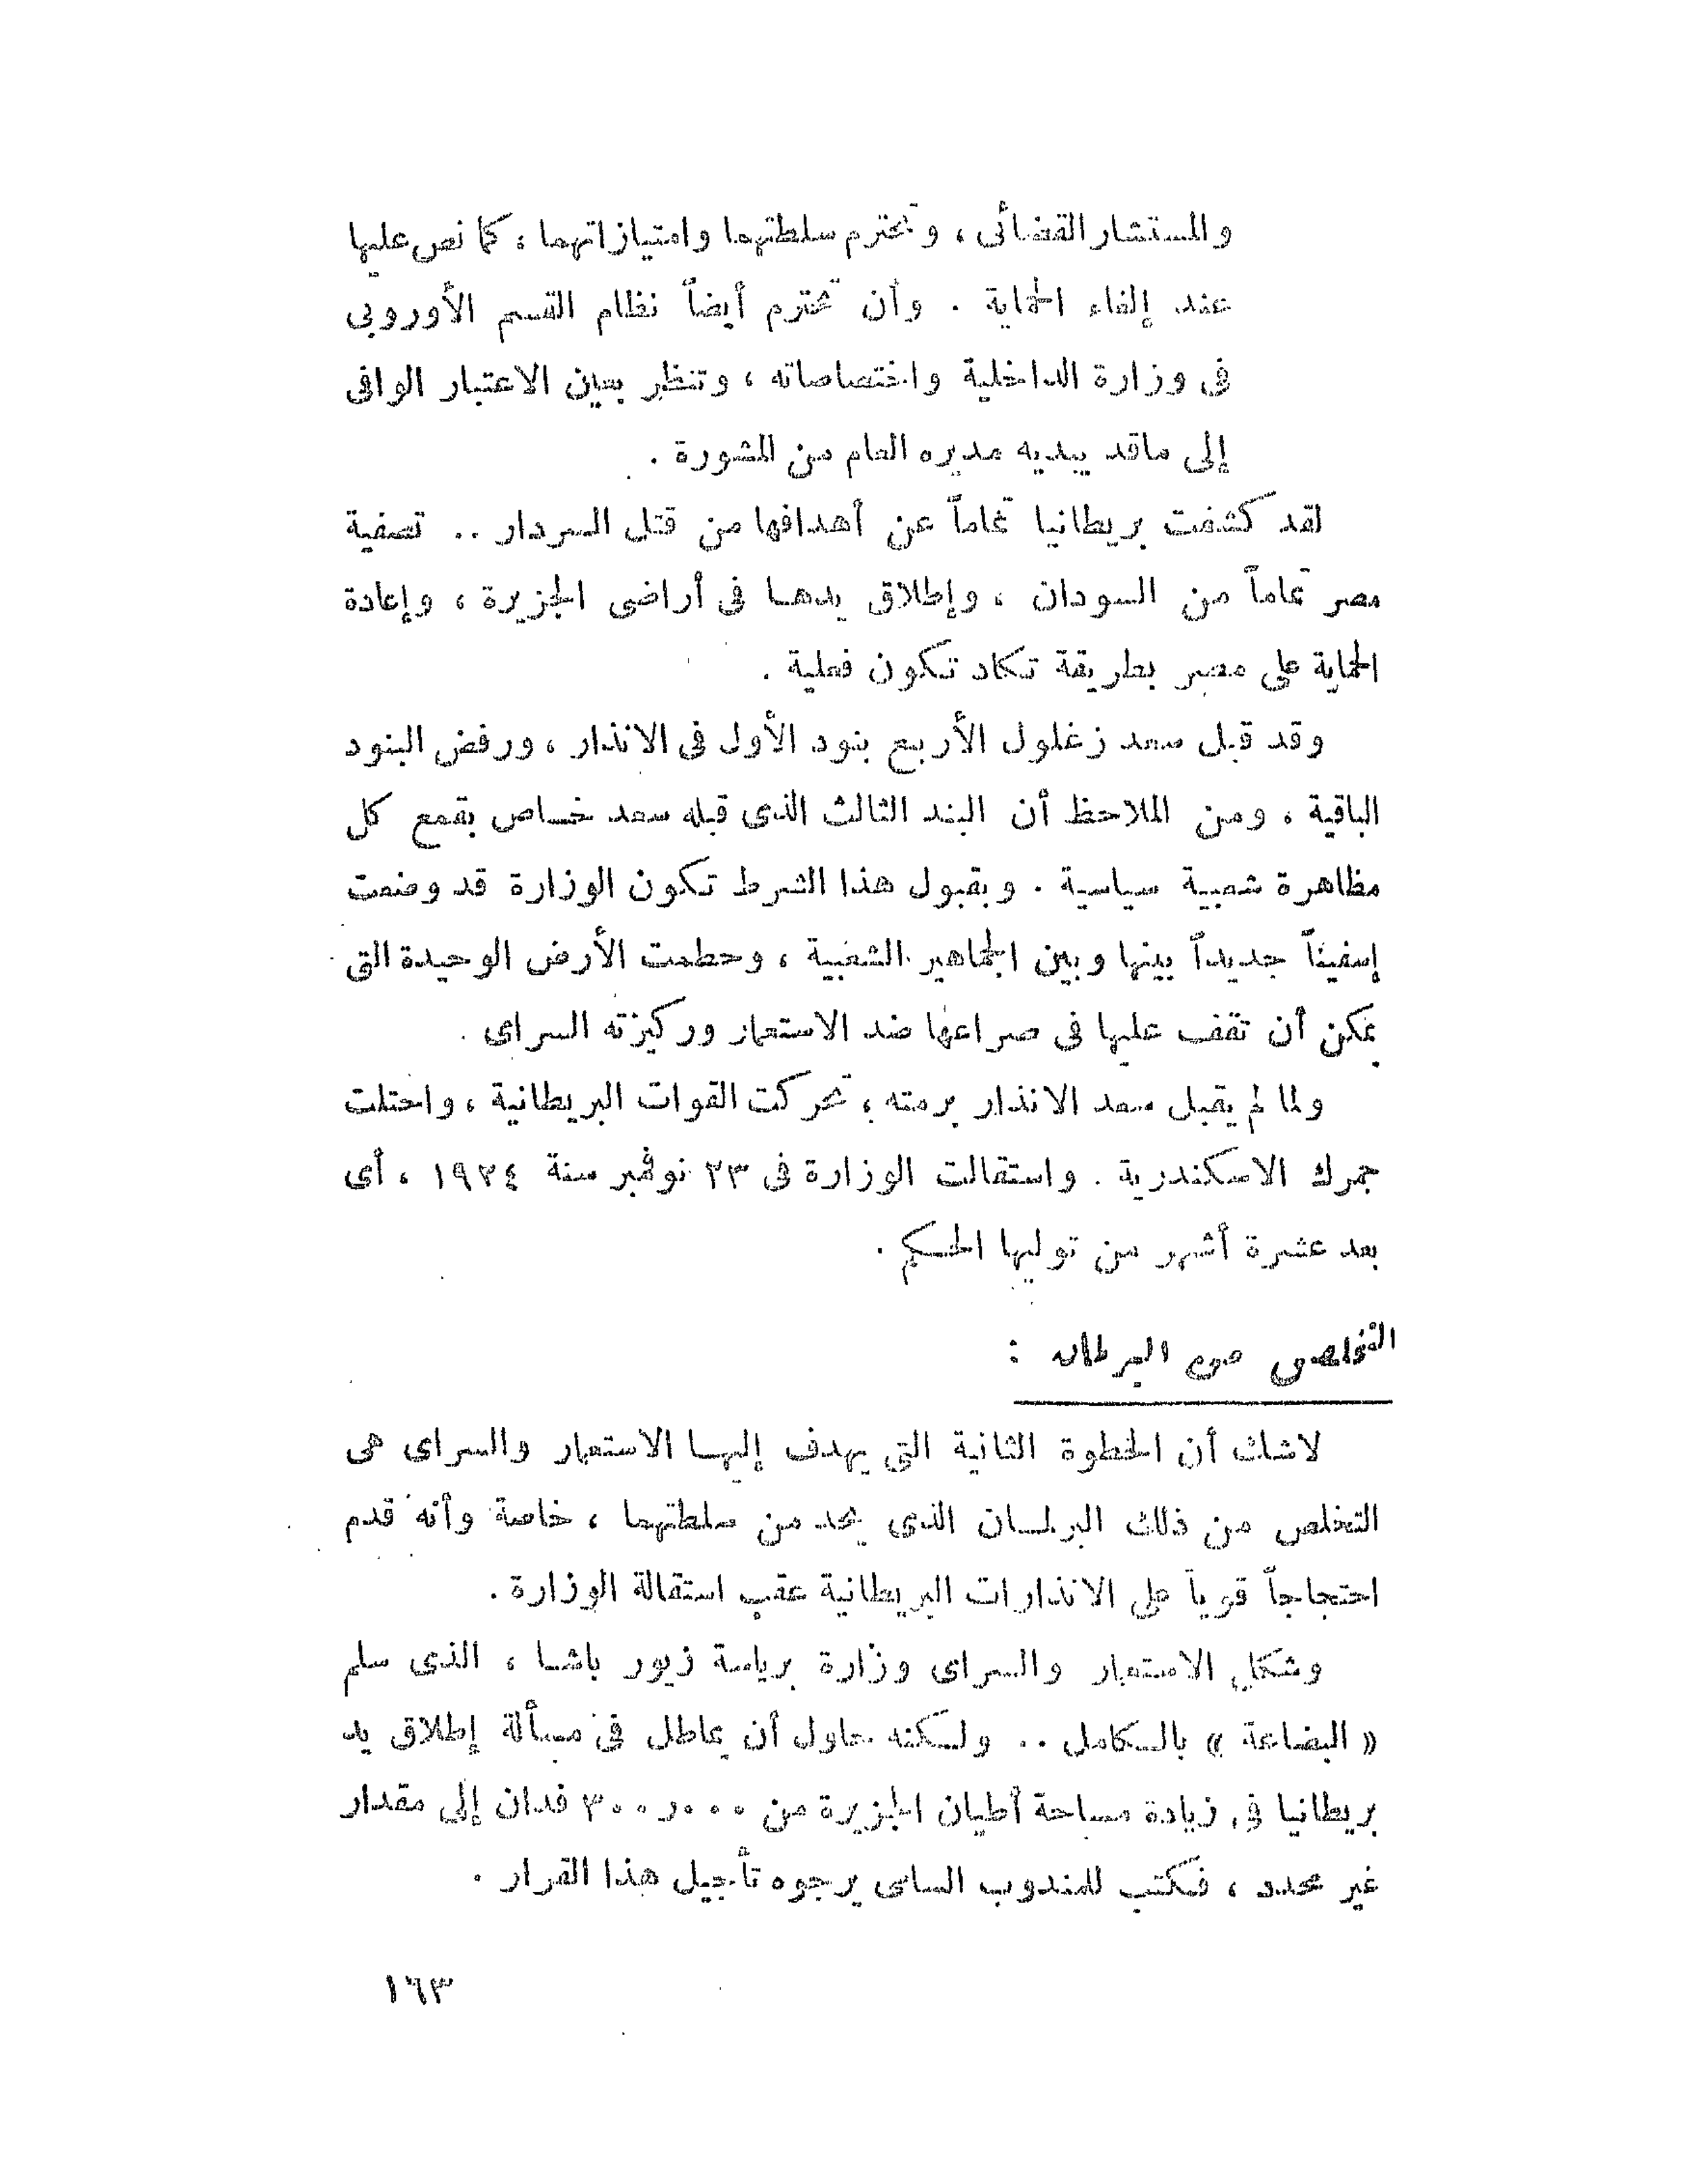 والمستشار القضائى ، وتحترم سلطتهما وامتيازاتهما ، كما نص عليها
عند إلغاء الحماية . وأن تحترم أيضاً نظام القسم الأوروبى
فى وزارة الداخلية واختصاصاته ، وتنظر بعين الاعتبار الوافى
إلى ماقد يبديه مديره العام من المشورة .
لقد كشفت بريطانيا تماماً عن أهدافها من قتل السردار .. تصفية
مصر تماماً من السودان ، وإطلاق يدها فى أراضى الجزيرة ، وإعادة
الحماية على مصر بطريقة تكاد تكون فعلية .
وقد قبل سعد زغلول الأربع بنود الأول فى الانذار ، ورفض البنود
الباقية ، ومن الملاحظ أن البند الثالث الذى قبله سعد خاص بقمع كل
مظاهرة شعبية سياسية . وبقبول هذا الشرط تكون الوزارة قد وضعت
إسفيناً جديداً بينها وبين الجماهير الشعبية ، وحطمت الأرض الوحيدة التى
يمكن أن تقف عليها فى صراعها ضد الاستعمار وركيزته السراى .
ولما لم يقبل سعد الانذار برمته ، تحركت القوات البريطانية ، واحتلت
جمرك الاسكندرية . واستقالت الوزارة فى ٢٣ نوفمبر سنة ١٩٢٤ ، أى
بعد عشرة أشهر من توليها الحكم .
التخلص من البرلمان :
لاشك أن الخطوة الثانية التى يهدف إليها الاستعمار والسراى هى
التخلص من ذلك البرلمان الذى يحد من سلطتهما ، خاصة وأنه قدم
احتجاجاً قوياً على الانذارات البريطانية عقب استقالة الوزارة .
وشكل الاستعمار والسراى وزارة برياسة زيور باشا ، الذى سلم
« البضاعة » بالكامل .. ولكنه حاول أن يماطل فى مسألة إطلاق يد
بريطانيا فى زيادة مساحة أطيان الجزيرة من ٣٠٠ر٠٠٠ فدان إلى مقدار
غير محدد ، فكتب للمندوب السامى يرجوه تأجيل هذا القرار .
١٦٣